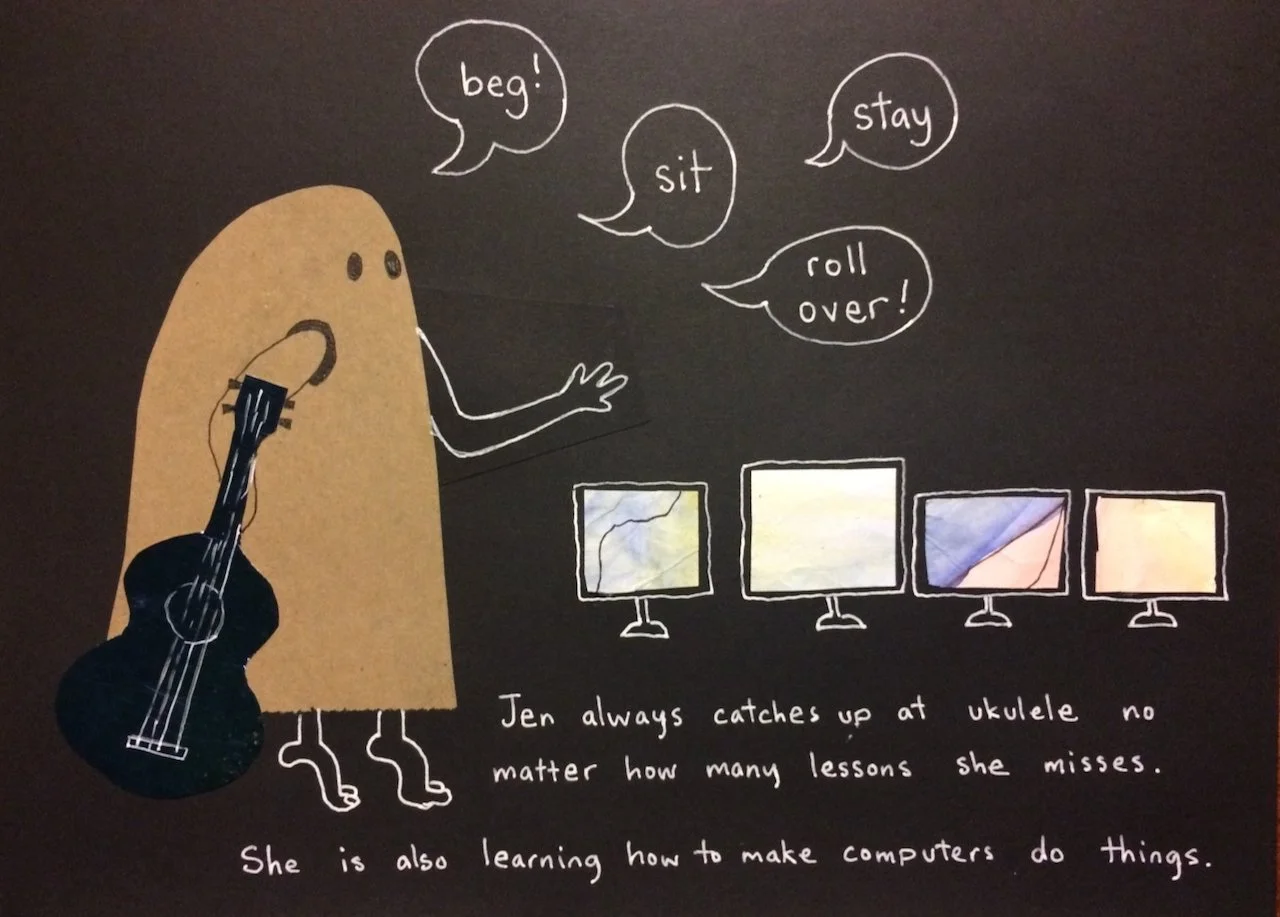 beg!
sit
stay
roll
over!
Jen always catches up at ukulele no
matter how many lessons she misses.
She is also learning how to make computers do things.